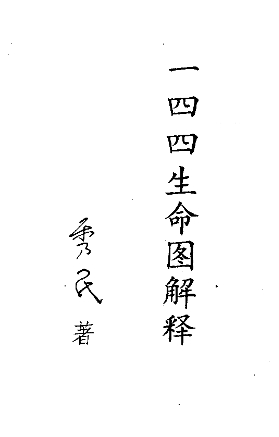 一四四生命图解释
秀民
著